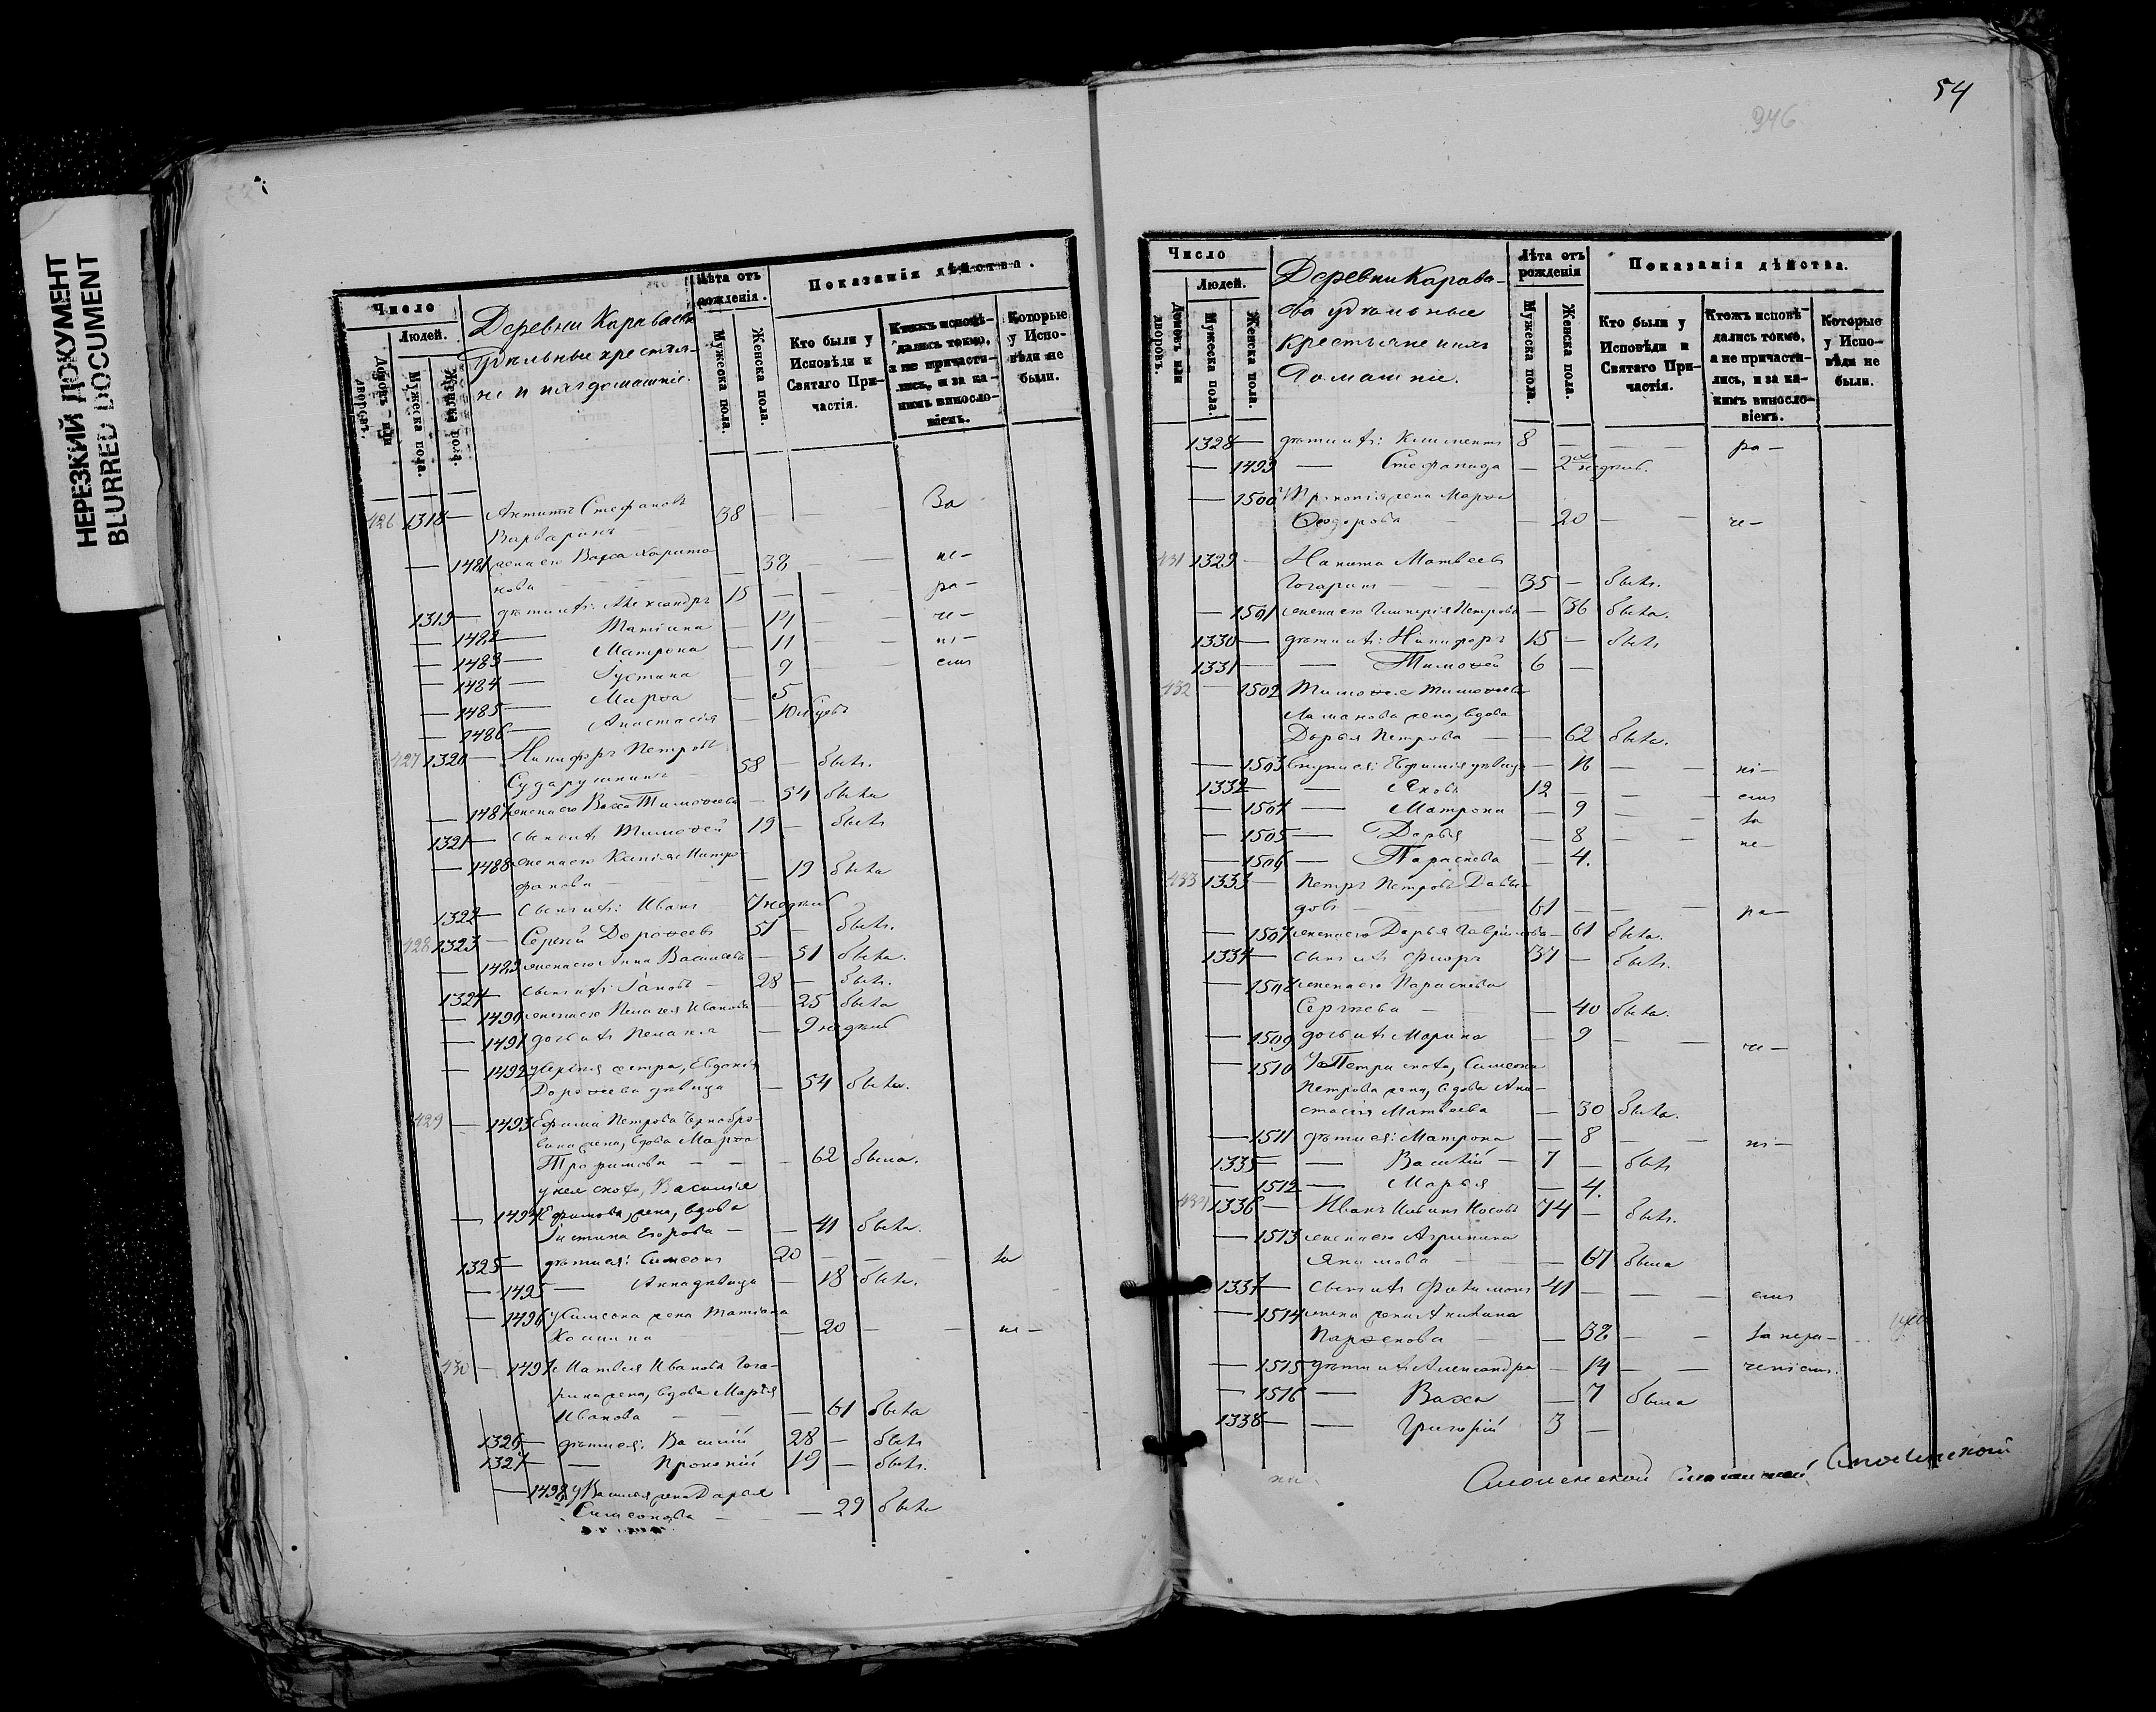 НЕРЕЗКИЙ ДОКУМЕНТ
BLURRED DOCUMENT
Число
Людей.
Домовъ или дворовъ.
Мужеска пола.
Женска пола.
Деревни Караваева
удѣльные крестья-
не и ихъ домашніе.
Лѣта отъ рожденія.
Мужеска пола.
Женска пола.
Показанія дѣйства.
Кто были у Исповѣди и Святаго При-частія.
Ктожъ исповѣ-дались токмо, а не причасти-лись, и за ка-кимъ винословіемъ.
Которые у Испо-вѣди не были.
426 1318 — Стефановъ 38 — — За
Варваринъ
— 1481 жена его Васса Харито-
нова — 38 — не—
1319 — дѣти ихъ: Александръ 15 — — ра—
— 1482 — Татіана — 14 — че—
— 1483 — Матрона — 11 — ні—
— 1484 — Іустина — 9 — емъ
— 1485 — Марѳа — 5
— 1486 — Анастасія —
427 1320 — Никифоръ Петровъ
Сударушкинъ 58 — былъ.
— 1487 жена его Васса Тимоѳеева — 54 была
1321 — сынъ ихъ Тимоѳей 19 — былъ
— 1488 жена его Митро-
фанова — 19 была
1322 — сынъ ихъ: Иванъ 7 недѣль
428 1323 — Сергѣй Дороѳеевъ 51 — былъ.
— 1489 жена его Анна Васильева — 51 была.
1324 — сынъ ихъ: Іаковъ — 28 — былъ.
— 1490 жена его Пелагея Иванова — 25 была
— 1491 дочь ихъ Пелагея — 9 недѣль
— 1492 у Сергѣя сестра, Евдокія
Дороѳеева дѣвица — 54 была.
429 — 1493 Ефима Петрова Чернобро-
вина жена, вдова Марѳа
Трофимова — — — 62 была.
у нея сноха, Василія
— 1494 Ефимова, жена, вдова
Іустина Егорова — — 41 была.
1325 — дѣти ея: Симеонъ 20 — — — За
— 1495 — Анна дѣвица — 18 была.
— 1496 у Симеона жена Татіана
— 20 — — не—
430 — 1497 Матвея Иванова Гога-
рина жена, вдова Марья
Иванова — — — 61 была
1326 — дѣти ея: Василій 28 — былъ
1327 — — Прокопій 19 — былъ.
— 1498 у Василья жена Дарья
Симеонова — — 29 была
54
946
Число
Людей.
Домовъ или дворовъ.
Мужеска пола.
Женска пола.
Деревни Карава-
ева удѣльные
крестьяне и ихъ
домашніе.
Лѣта отъ рожденія
Мужеска пола.
Женска пола.
Показанія дѣйства.
Кто были у Исповѣди и Святаго При-частія.
Ктожъ исповѣ-дались токмо, а не причасти-лись, и за ка-кимъ винословіемъ.
Которые у Испо-вѣди не были.
1328 — дѣти ихъ: Климентъ 8 — — — ра—
— 1499 — Стефанида — 2 недѣль.
— 1500 у Прокопія жена Марѳа
Ѳеодорова — — 20 — — че—
431 1329 — Никита Матвеевъ
Гогаринъ — 35 — былъ.
— 1501 жена его Гликерія Петрова — 36 была.
1330 — дѣти ихъ: Никифоръ 15 — былъ
1331 — — Тимоѳей 6 —
432 — 1502 Тимоѳея Тимоѳеева
жена, вдова
Дарья Петрова — — 62 была.
— 1503 внучка ея: Евфимія дѣвица — 16 — — ні—
1332 — — Яковъ 12 — — — емъ
— 1504 — Матрона — 9 — — За
— 1505 — Дарья — 8 — — не—
— 1506 — Параскева — 4.
433 1333 — Петръ Петровъ Давы-
довъ — 61 — — — ра—
— 1507 жена его Дарья Гаврилова — 61 была.
1334 — сынъ ихъ 37 — былъ.
— 1508 жена его Параскева
Сергѣева — — 40 была.
— 1509 дочь ихъ Марина — 9 — — че—
— 1510 У Петра сноха, Симеона
Петрова жена, вдова Ана-
стасія Матвѣева — 30 была.
— 1511 дѣти ея: Матрона — 8 — — ні—
1335 — — Василій — 7 — былъ
— 1512 — Марья — 4.
434 1336 — Иванъ Носовъ 74 — былъ.
— 1513 жена его Агрипина
Якимова — — 61 была
1337 — сынъ ихъ Филимонъ 41 — — — емъ
— 1514 жена Акилина
Парѳенова — — 38 — — За нера—
— 1515 дѣти ихъ Александра — 14 — — ченіемъ.
— 1516 — Васса — 7 была
1338 — — Григорій 3 —
Смоленской Смоленской Смоленской